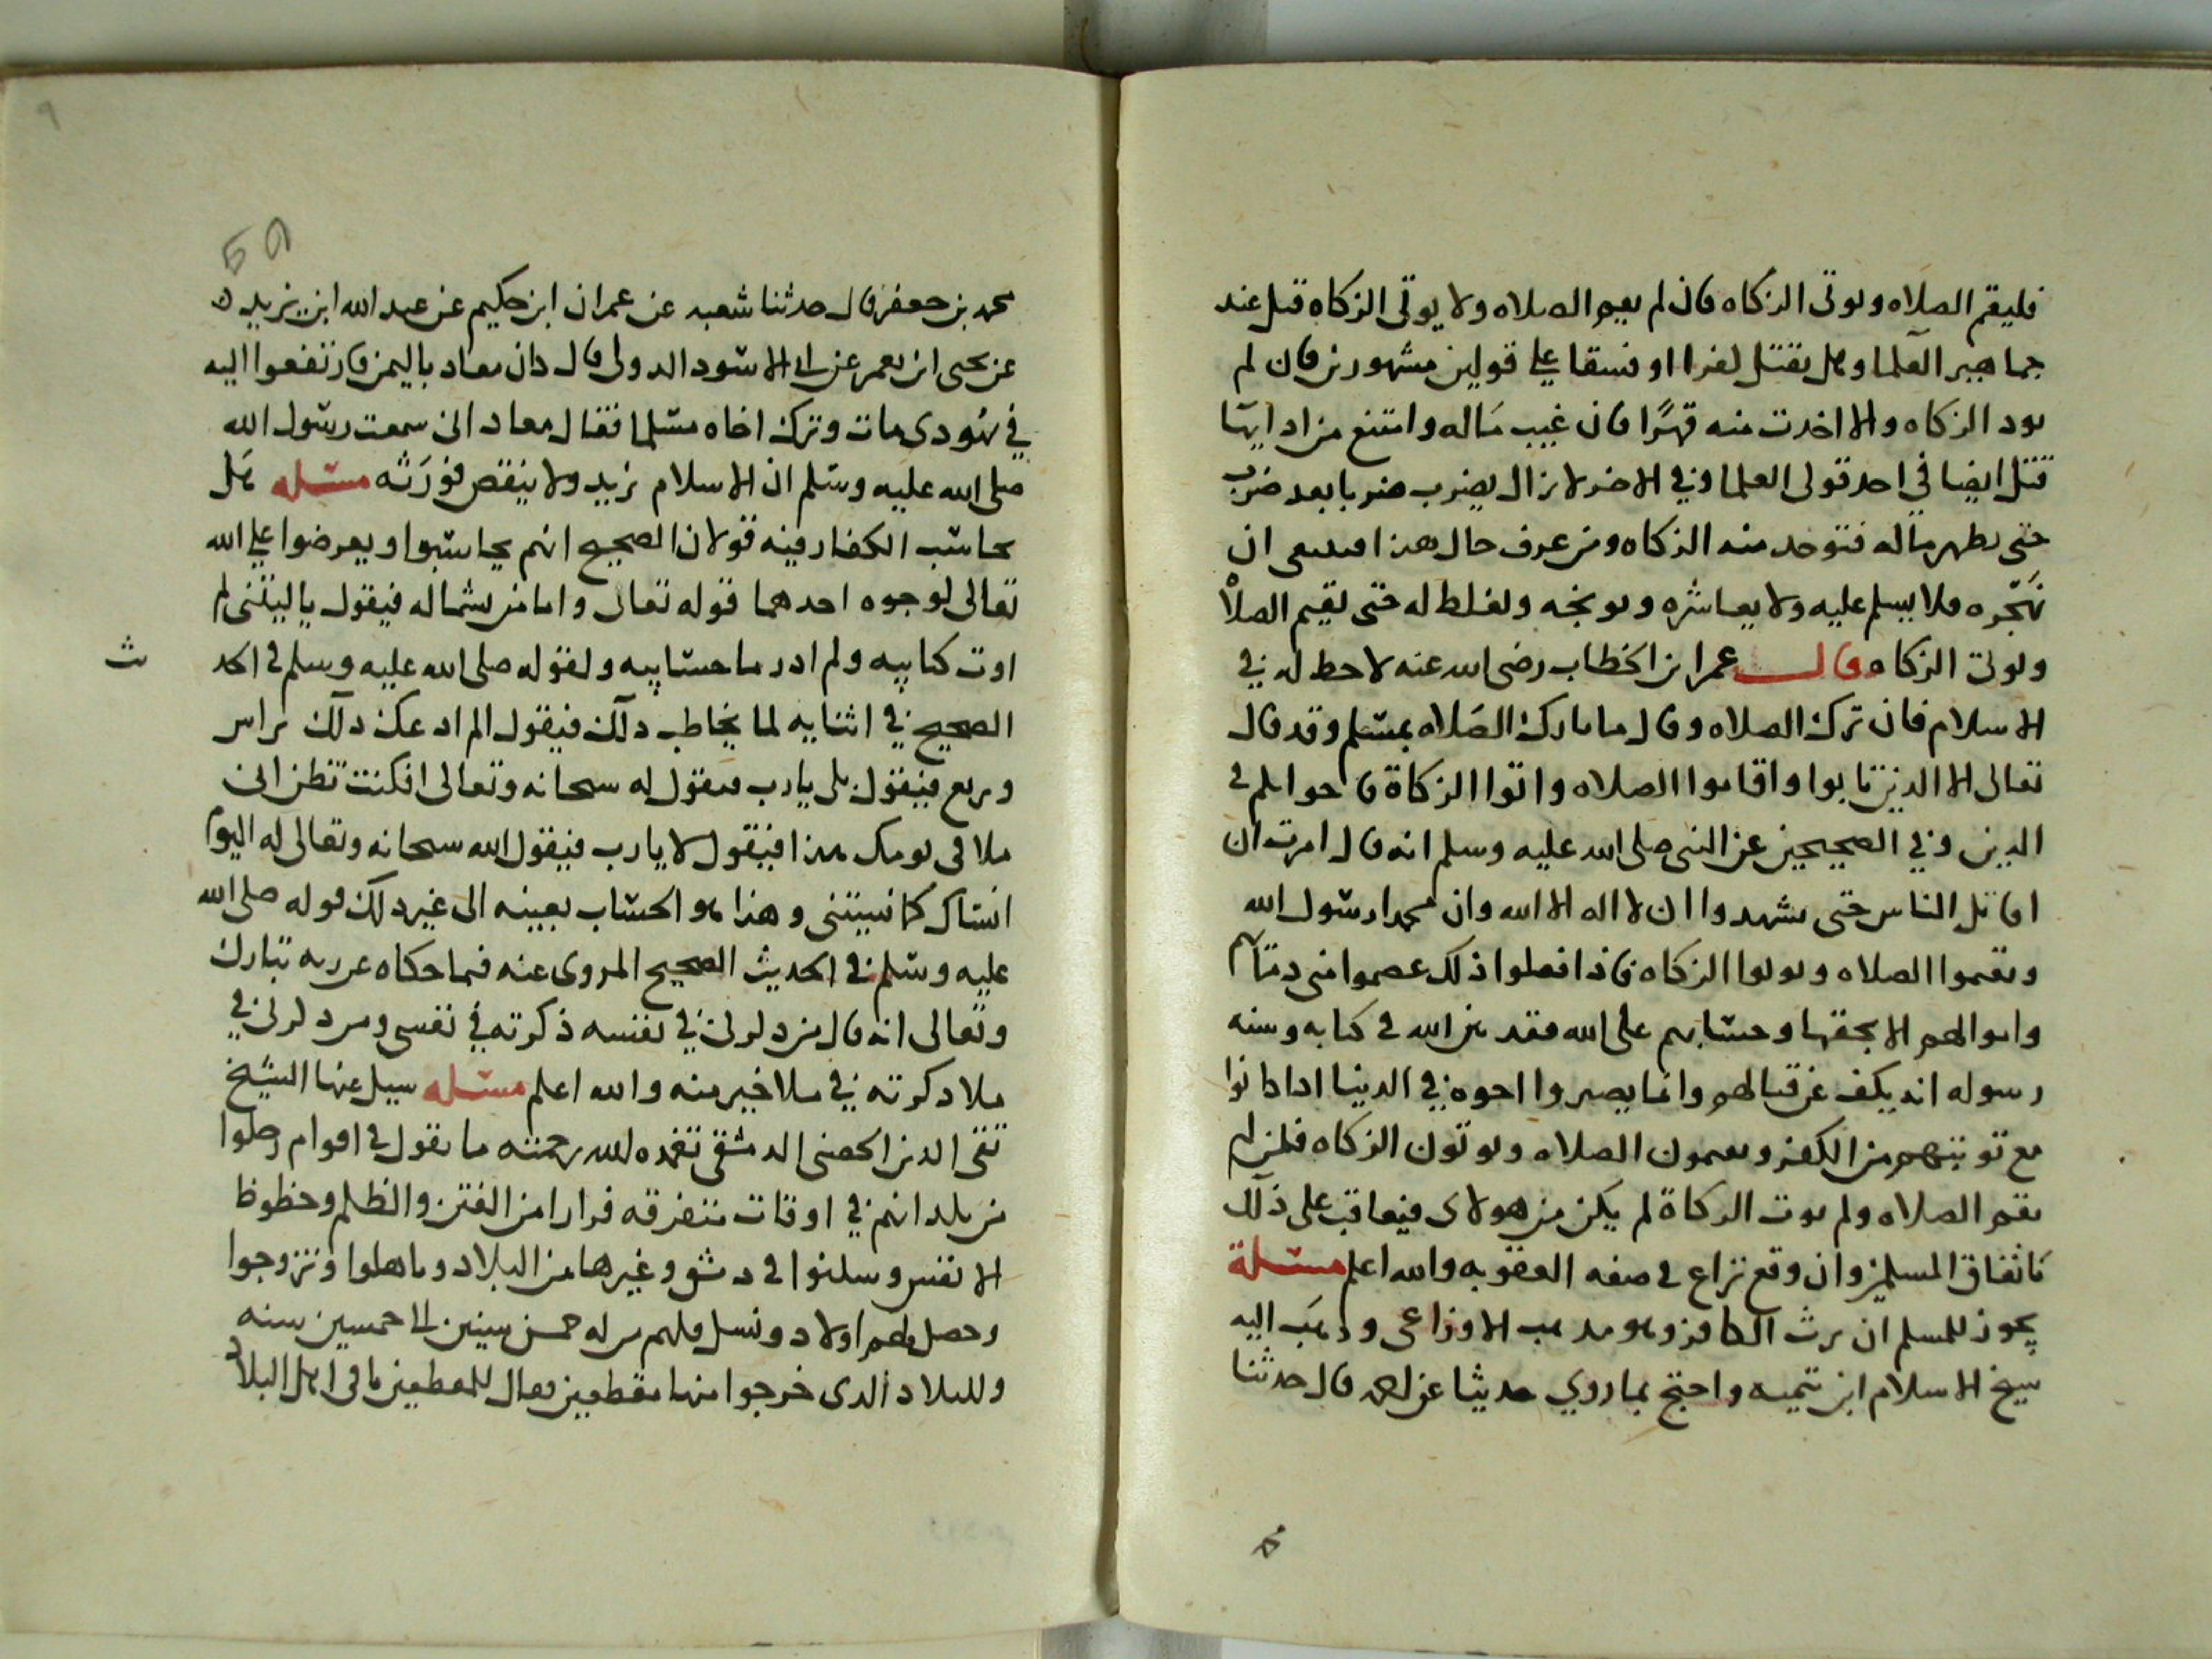 فليقم الصلاه ويوتى الزكاه فان لم يقيم الصلاه ولا يوتى الزكاه قتل عند
جماهير العلما وهل يقتل كفرا او فسقا على قولين مشهورين فان لم
يود الزكاه والا اخدت منه قهرًا فان غيب ماله وامتنع من اداايها
قتل ايضا في احد قولى العلما وفي الاخر لا يزال يضرب ضربا بعد ضرب
حتى يظهر ماله فتوخد منه الزكاه ومن عرف حال هذا فينبغى ان
يهجره فلا يسلم عليه ولا يعاشره ويوبخه ويغلظ له حتى يقيم الصلاه
ويوتى الزكاه وقال عمر ابن الخطاب رضى الله عنه لا حظ له في
الاسلام فان ترك الصلاه وقال ما تارك الصلاه بمسلم وقد قال
تعالى الا الذين تابوا واقاموا الصلاه واتوا الزكاة فاخوانكم في
الدين وفي الصحيحين عن النبى صلى الله عليه وسلم انه قال امرت ان
اقاتل الناس حتى يشهدوا ان لا اله الا الله وان محمدا رسول الله
ويقيموا الصلاه ويوتوا الزكاه فاذا فعلوا ذلك عصموا منى دماهم
واموالهم الا بحقها وحسابهم على الله فقد بين الله في كتابه وسنه
رسوله انه يكف عن قتالهم وانما يصيروا اخوه في الدنيا اذا كانوا
مع توبتهم من الكفر ويقيمون الصلاه ويوتون الزكاه فمن لم
يقيم الصلاه ولم يوت الزكاة لم يكن من هولاى فيعاقب على ذلك
باتفاق المسلمين وان وقع نزاع في صفه العقوبه والله اعلم مسئلة
يجوز للمسلم ان يرث الكافر وهو مذهب الاوزاعى وذهب اليه
شيخ الاسلام ابن تيميه واحتج بما روي حديثا عن احمد قال حدثنا
محمد بن جعفر قال حدثنا شعبه عن عمران ابن حكيم عن عبد الله ابن بريده
عن يحيى ابن يعمر عن ابى الاسود الدولى قال كان معاد باليمن فارتفعوا اليه
في يهودى مات وترك اخاه مسلما فقال معاد انى سمعت رسول الله
صلى الله عليه وسلم ان الاسلام يزيد ولا ينقص فورثه مسئله هل
يحاسب الكفار فيه قولان الصحيح انهم يحاسبوا ويعرضوا على الله
تعالى لوجوه احدهما قوله تعالى واما من بشماله فيقول ياليتنى لم
اوت كتابيه ولم ادر ما حسابيه ولقوله صلى الله عليه وسلم في الحد
يث
الصحيح في اثنايه لما يخاطب دلك فيقول الم اد عك دلك تراس
وتربع فيقول بلى يارب فيقول له سبحانه وتعالى افكنت تظن انى
ملاقى يومك هذا فيقول لا يارب فيقول الله سبحانه وتعالى له اليوم
انساك كما نسيتنى وهذا هو الحساب بعينه الى غير دلك قوله صلى الله
عليه وسلم في الحديث الصحيح المروى عنه فيما حكاه عن ربه تبارك
وتعالى انه قال من دكرنى في نفسه ذكرته في نفسى ومن دكرنى في
ملا دكرته في ملا خير منه والله اعلم مسئله سيل عنها الشيخ
تقى الدين الحصنى الدمشقى تغمده الله برحمته ما يقول في اقوام رحلوا
من بلدانهم في اوقات متفرقه فرارا من الفتن والظلم وحظوظ
الانفس وسكنوا في دمشق وغيرها من البلاد وتاهلوا وتزوجوا
وحصل لهم اولاد ونسل فلهم من له خمس سنين الى خمسين سنه
وللبلاد الدى خرجوا منها مقطعين يقال للمقطعين باقى اهل البلاد